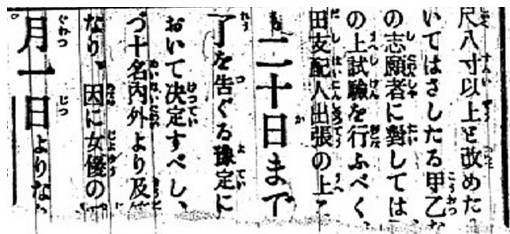 尺八寸以上と改めた。
いてはさしたる甲乙な
の志願者に對しては
の上試驗を行ふべく、
田支配人出張の上
二十日まで
了を告ぐる豫定に
おいて決定すべし、
づ十名內外より及
なり、因に女優の
月一日よりな